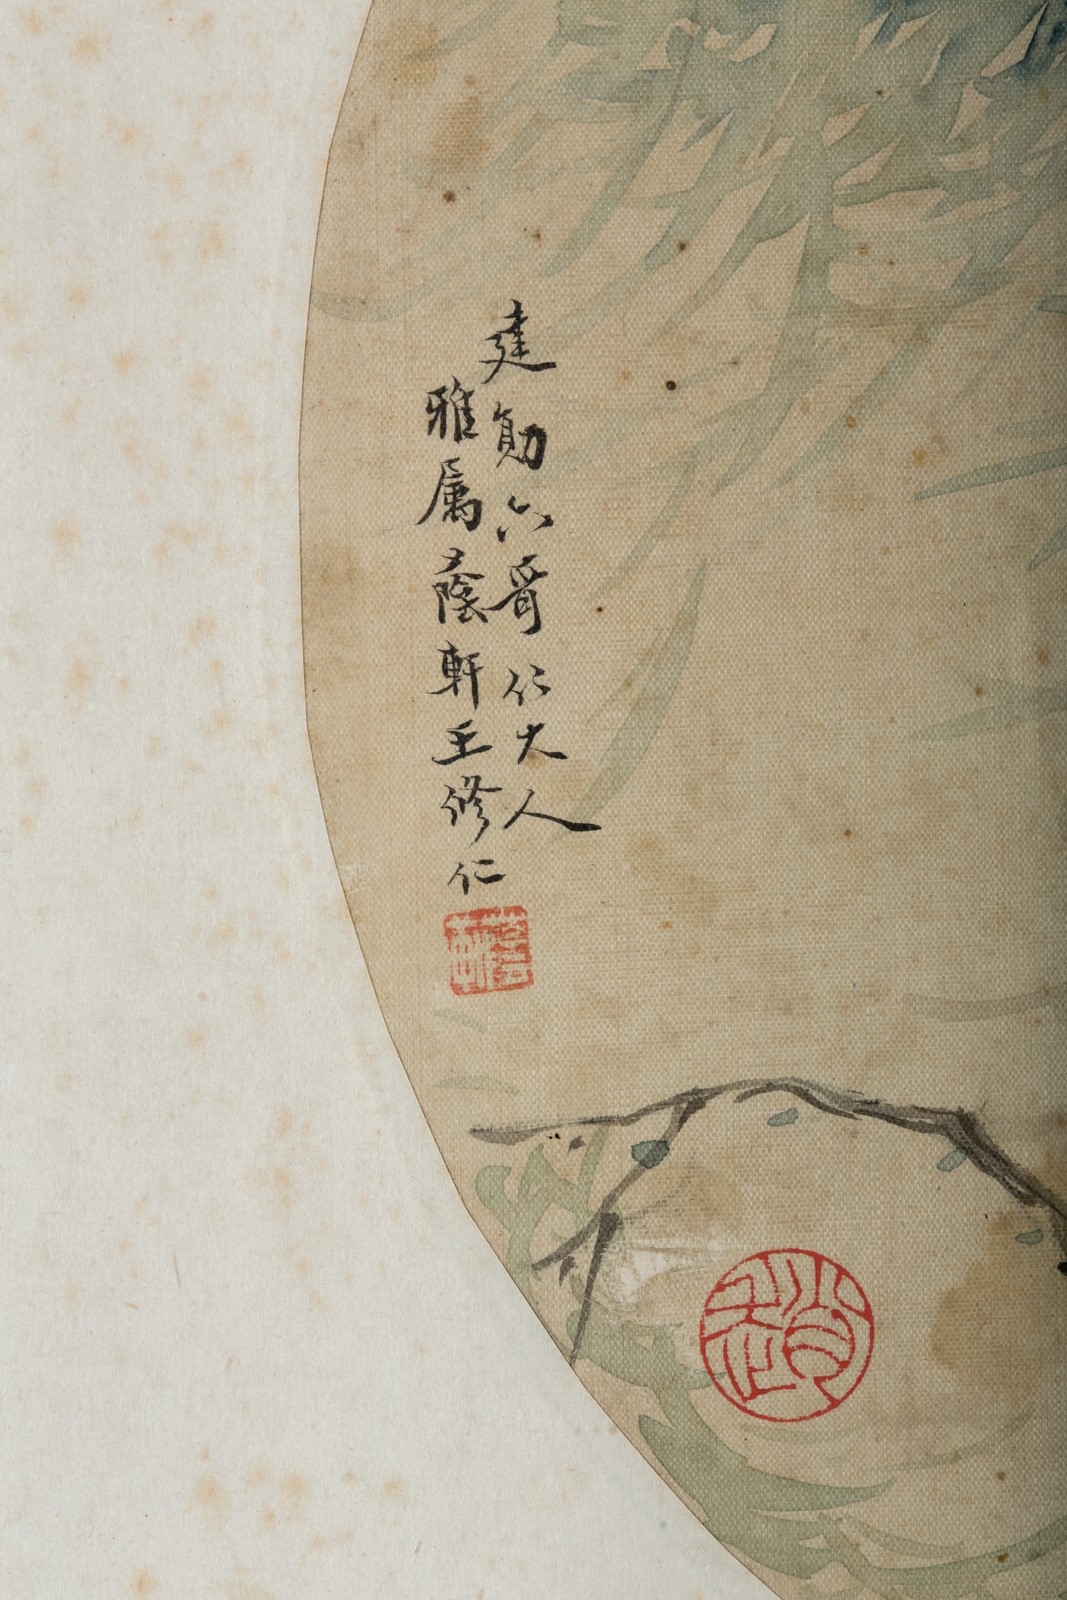 建勛六哥仁大人
雅属蔭軒王修仁
趙